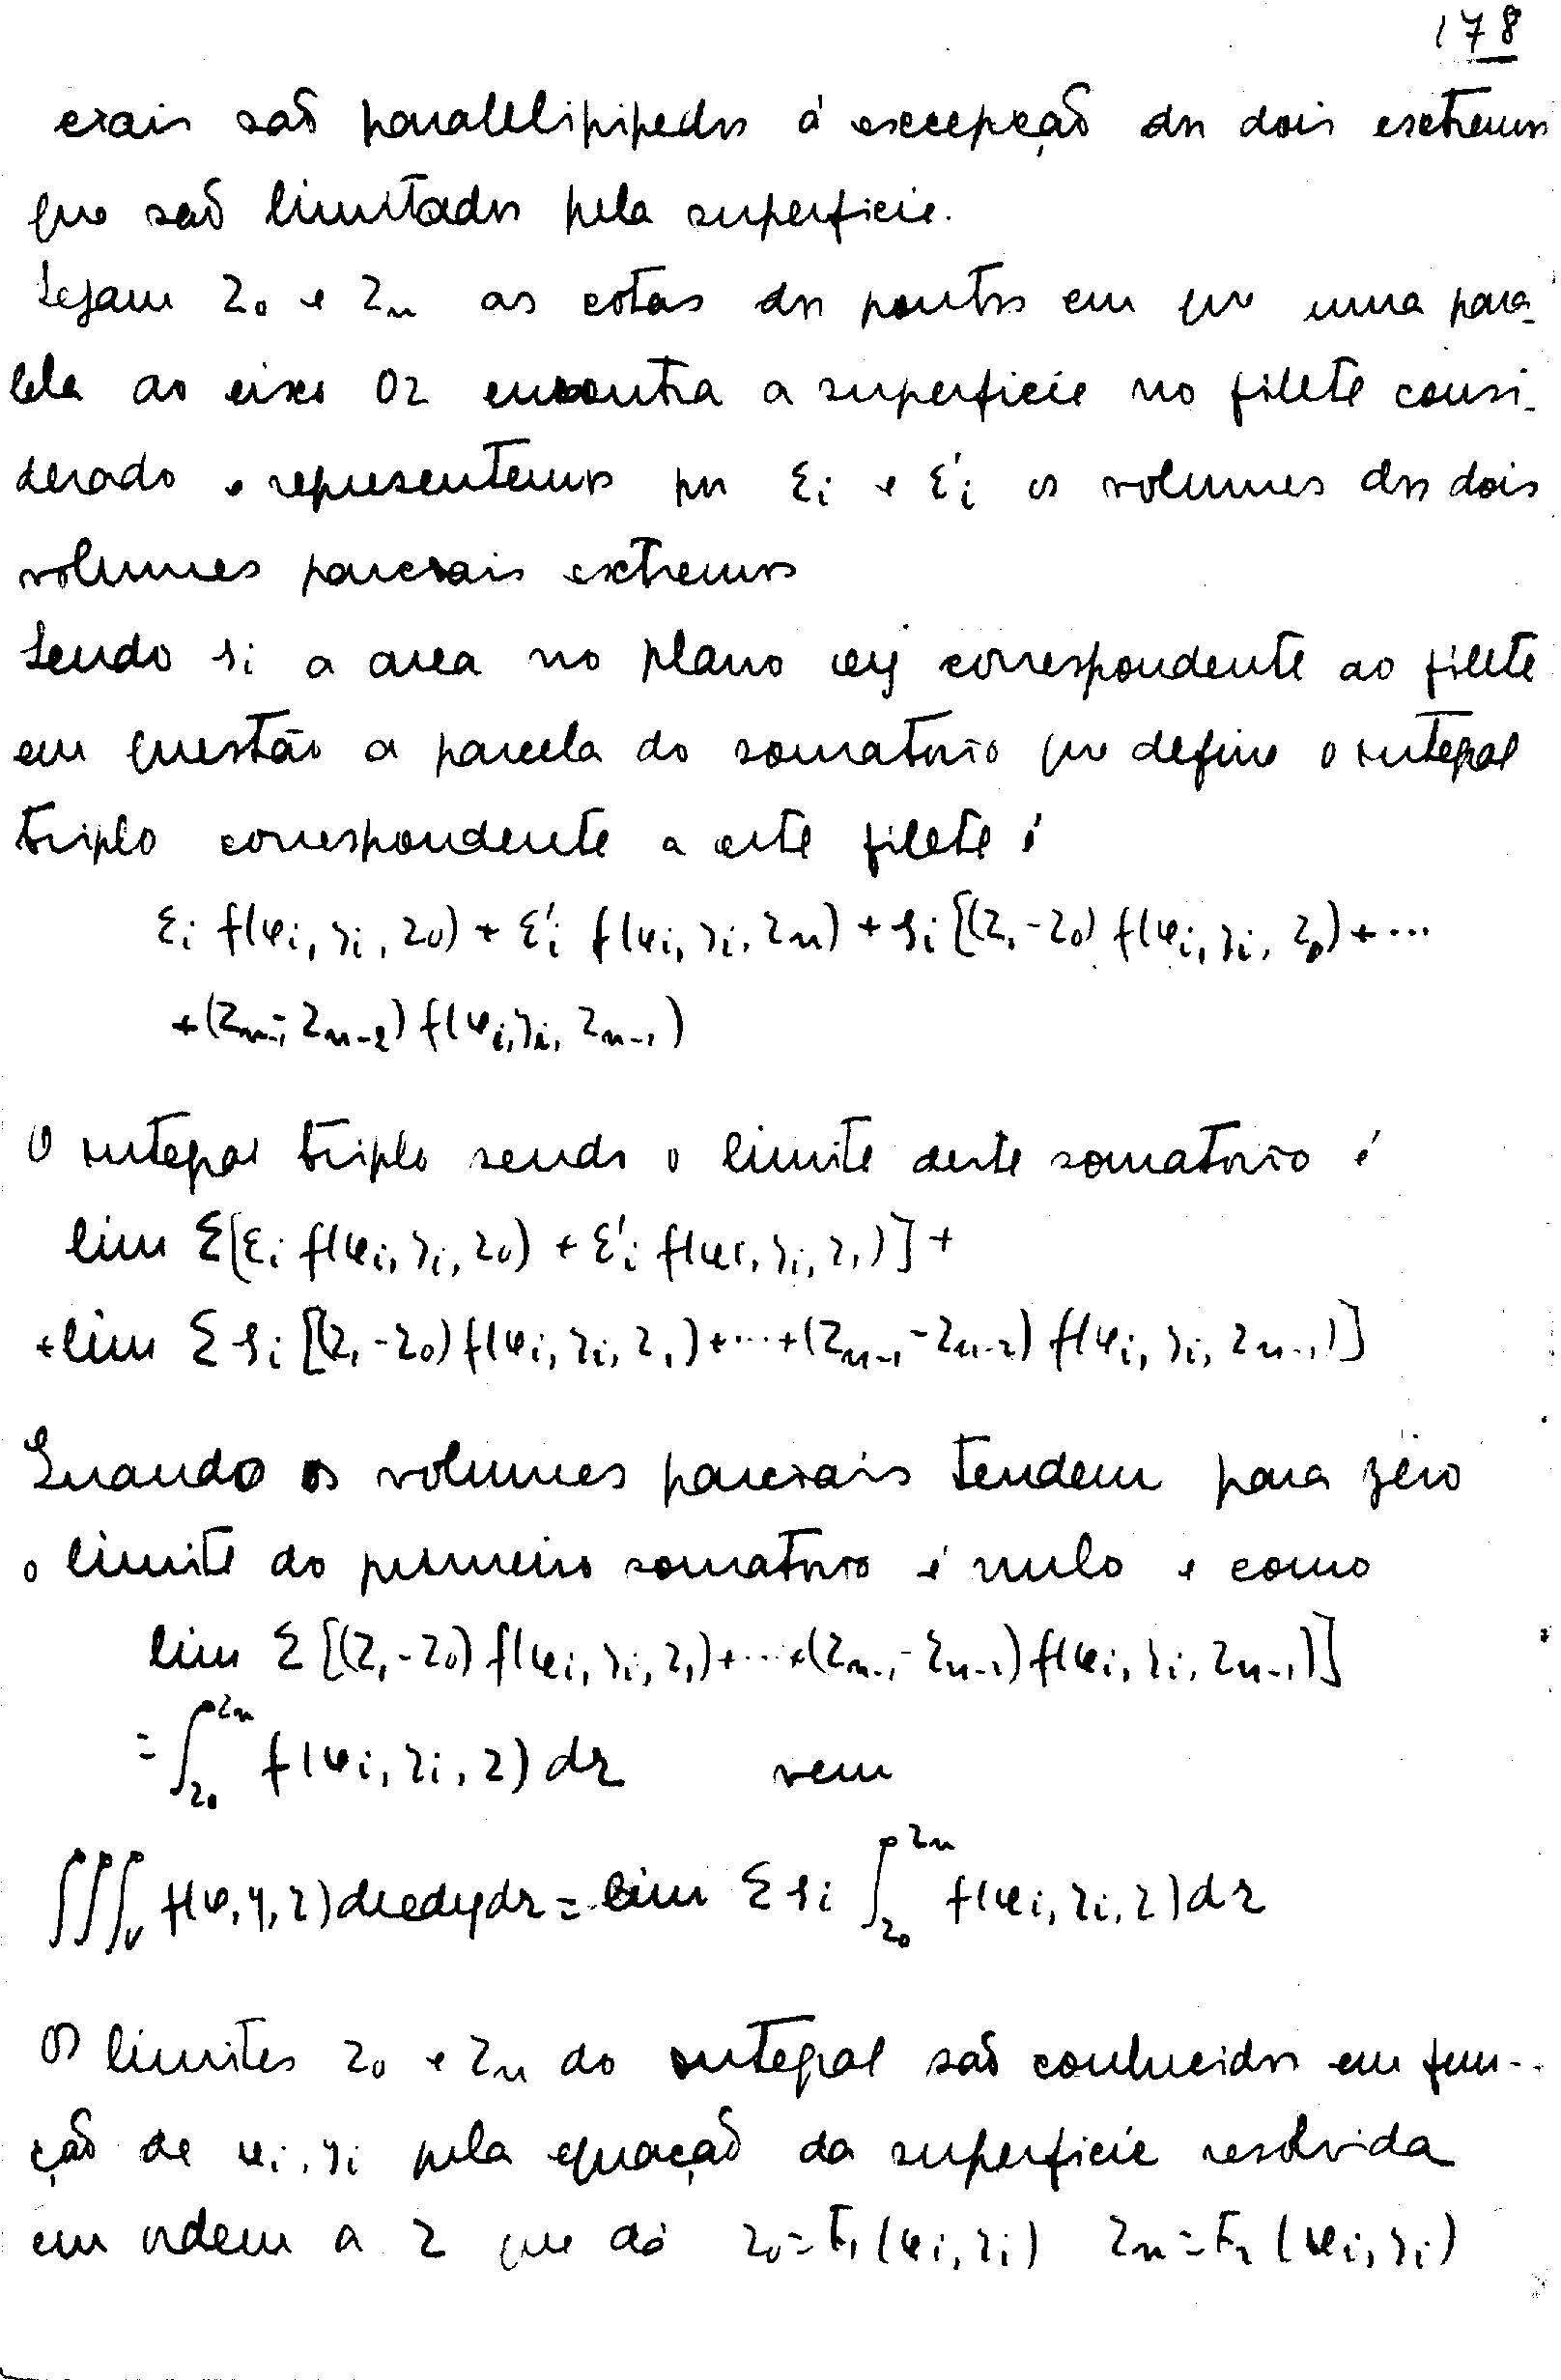 178
ciais são parallelipipedos á excepção dos dois extremos
que são limitados pela superficie.
Sejam z₀ e zₙ as cotas dos pontos em que uma para-
lela ao eixo Oz encontra a superficie no filete consi-
derado e representemos por εᵢ e ε'ᵢ os volumes dos dois
volumes parciais extremos
Sendo sᵢ a area no plano xy correspondente ao filete
em questão a parcela do somatorio que define o integral
triplo correspondente a este filete é
εᵢ f(xᵢ, yᵢ, z₀) + ε'ᵢ f(xᵢ, yᵢ, zₙ) + sᵢ [(z₁-z₀) f(xᵢ, yᵢ, z₀) + ...
+ (zₙ₋₁ - zₙ₋₂) f(xᵢ, yᵢ, zₙ₋₁)
O integral triplo sendo o limite deste somatorio é
lim Σ[εᵢ f(xᵢ, yᵢ, z₀) + ε'ᵢ f(xᵢ, yᵢ, z₁)] +
+ lim Σ sᵢ [(z₁-z₀) f(xᵢ, yᵢ, z₁) + ... + (zₙ₋₁ - zₙ₋₂) f(xᵢ, yᵢ, zₙ₋₁)]
Quando os volumes parciais tendem para zéro
o limite do primeiro somatorio é nulo e como
lim Σ [(z₁-z₀) f(xᵢ, yᵢ, z₁) + ... + (zₙ₋₁ - zₙ₋₂) f(xᵢ, yᵢ, zₙ₋₁)]
= ∫_{z₀}^{zₙ} f(xᵢ, yᵢ, z) dz vem
∫∫∫_V f(x, y, z) dx dy dz = lim Σ sᵢ ∫_{z₀}^{zₙ} f(xᵢ, yᵢ, z) dz
Os limites z₀ e zₙ do integral são conhecidos em fun-
ção de xᵢ, yᵢ pela equação da superficie resolvida
em ordem a z que dá z₀ = F₁ (xᵢ, yᵢ) zₙ = F₂ (xᵢ, yᵢ)